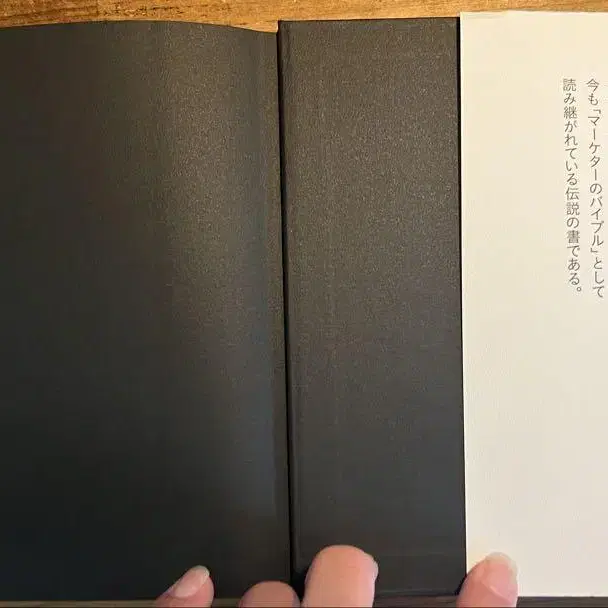 今も「マーケターのバイブル」として
読み継がれている伝説の書である。